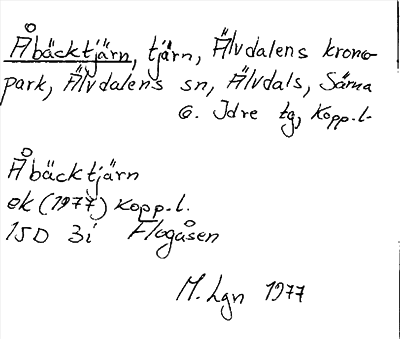 Åbäcktjärn, tjärn, Älvdalens krono-
park, Älvdalens sn, Älvdals, Särna
o. Idre tg, Kopp.l.
Åbäcktjärn
ek (1977) Kopp.l.
15D 3i Flogåsen
M. Lgn 1977